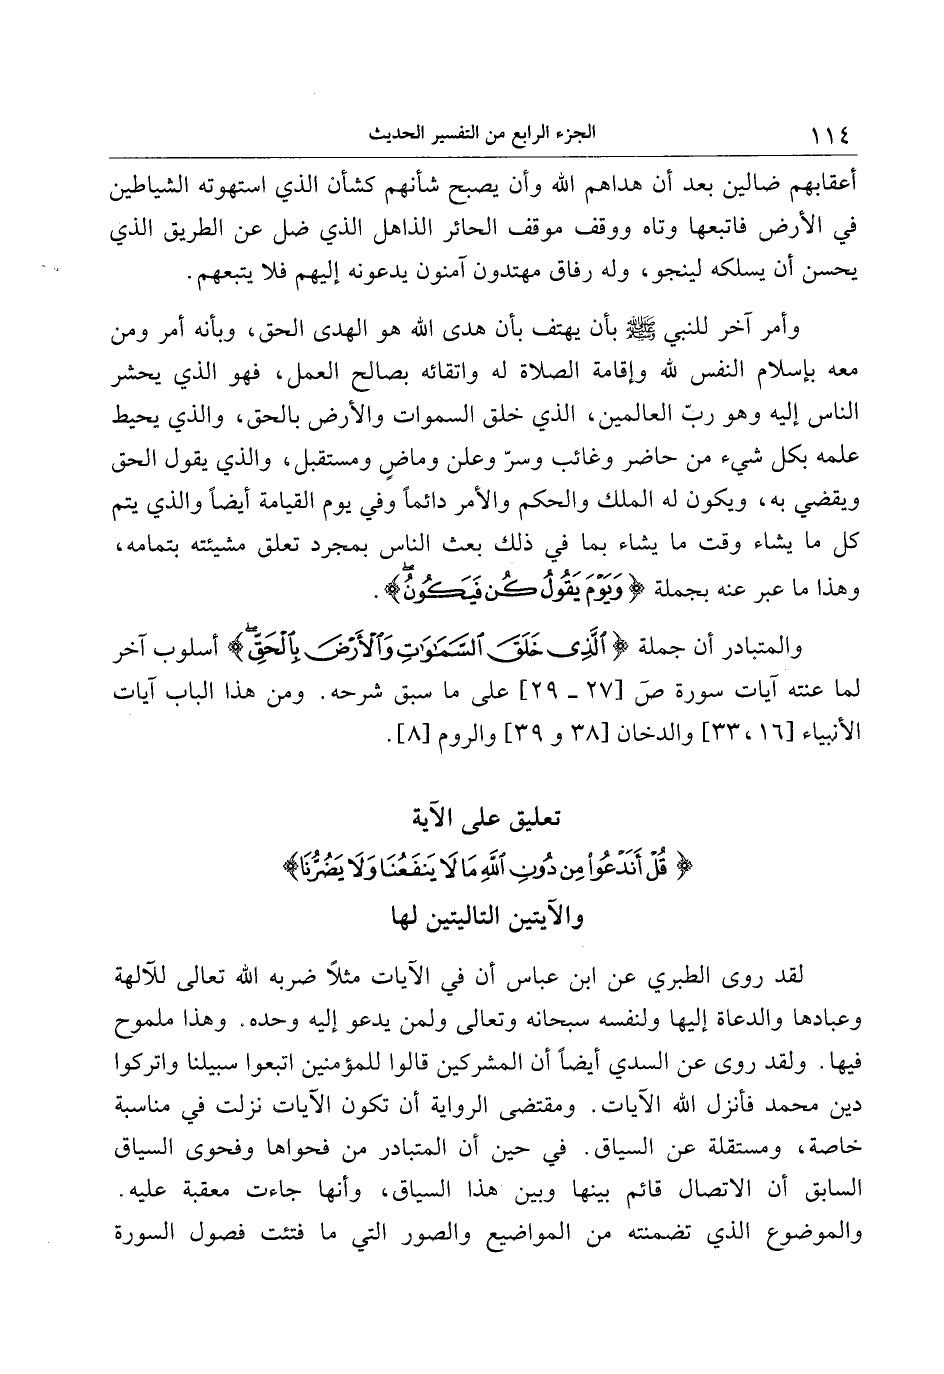 ١١٤ الجزء الرابع من التفسير الحديث
أعقابهم ضالين بعد أن هداهم الله وأن يصبح شأنهم كشأن الذي استهوته الشياطين
في الأرض فاتبعها وتاه ووقف موقف الحائر الذاهل الذي ضل عن الطريق الذي
يحسن أن يسلكه لينجو، وله رفاق مهتدون آمنون يدعونه إليهم فلا يتبعهم.
وأمر آخر للنبي ﷺ بأن يهتف بأن هدى الله هو الهدى الحق، وبأنه أمر ومن
معه بإسلام النفس لله وإقامة الصلاة له واتقائه بصالح العمل، فهو الذي يحشر
الناس إليه وهو ربّ العالمين، الذي خلق السموات والأرض بالحق، والذي يحيط
علمه بكل شيء من حاضر وغائب وسرّ وعلن وماضٍ ومستقبل، والذي يقول الحق
ويقضي به، ويكون له الملك والحكم والأمر دائماً وفي يوم القيامة أيضاً والذي يتم
كل ما يشاء وقت ما يشاء بما في ذلك بعث الناس بمجرد تعلق مشيئته بتمامه،
وهذا ما عبر عنه بجملة ﴿وَيَوْمَ يَقُولُ كُن فَيَكُونُۖ﴾.
والمتبادر أن جملة ﴿ٱلَّذِى خَلَقَ ٱلسَّمَٰوَٰتِ وَٱلْأَرْضَ بِٱلْحَقِّۖ﴾ أسلوب آخر
لما عنته آيات سورة صَ [٢٧ ـ ٢٩] على ما سبق شرحه. ومن هذا الباب آيات
الأنبياء [١٦، ٣٣] والدخان [٣٨ و ٣٩] والروم [٨].
تعليق على الآية
﴿قُلْ أَنَدْعُوا۟ مِن دُونِ ٱللَّهِ مَا لَا يَنفَعُنَا وَلَا يَضُرُّنَا﴾
والآيتين التاليتين لها
لقد روى الطبري عن ابن عباس أن في الآيات مثلاً ضربه الله تعالى للآلهة
وعبادها والدعاة إليها ولنفسه سبحانه وتعالى ولمن يدعو إليه وحده. وهذا ملموح
فيها. ولقد روى عن السدي أيضاً أن المشركين قالوا للمؤمنين اتبعوا سبيلنا واتركوا
دين محمد فأنزل الله الآيات. ومقتضى الرواية أن تكون الآيات نزلت في مناسبة
خاصة، ومستقلة عن السياق. في حين أن المتبادر من فحواها وفحوى السياق
السابق أن الاتصال قائم بينها وبين هذا السياق، وأنها جاءت معقبة عليه.
والموضوع الذي تضمنته من المواضيع والصور التي ما فتئت فصول السورة